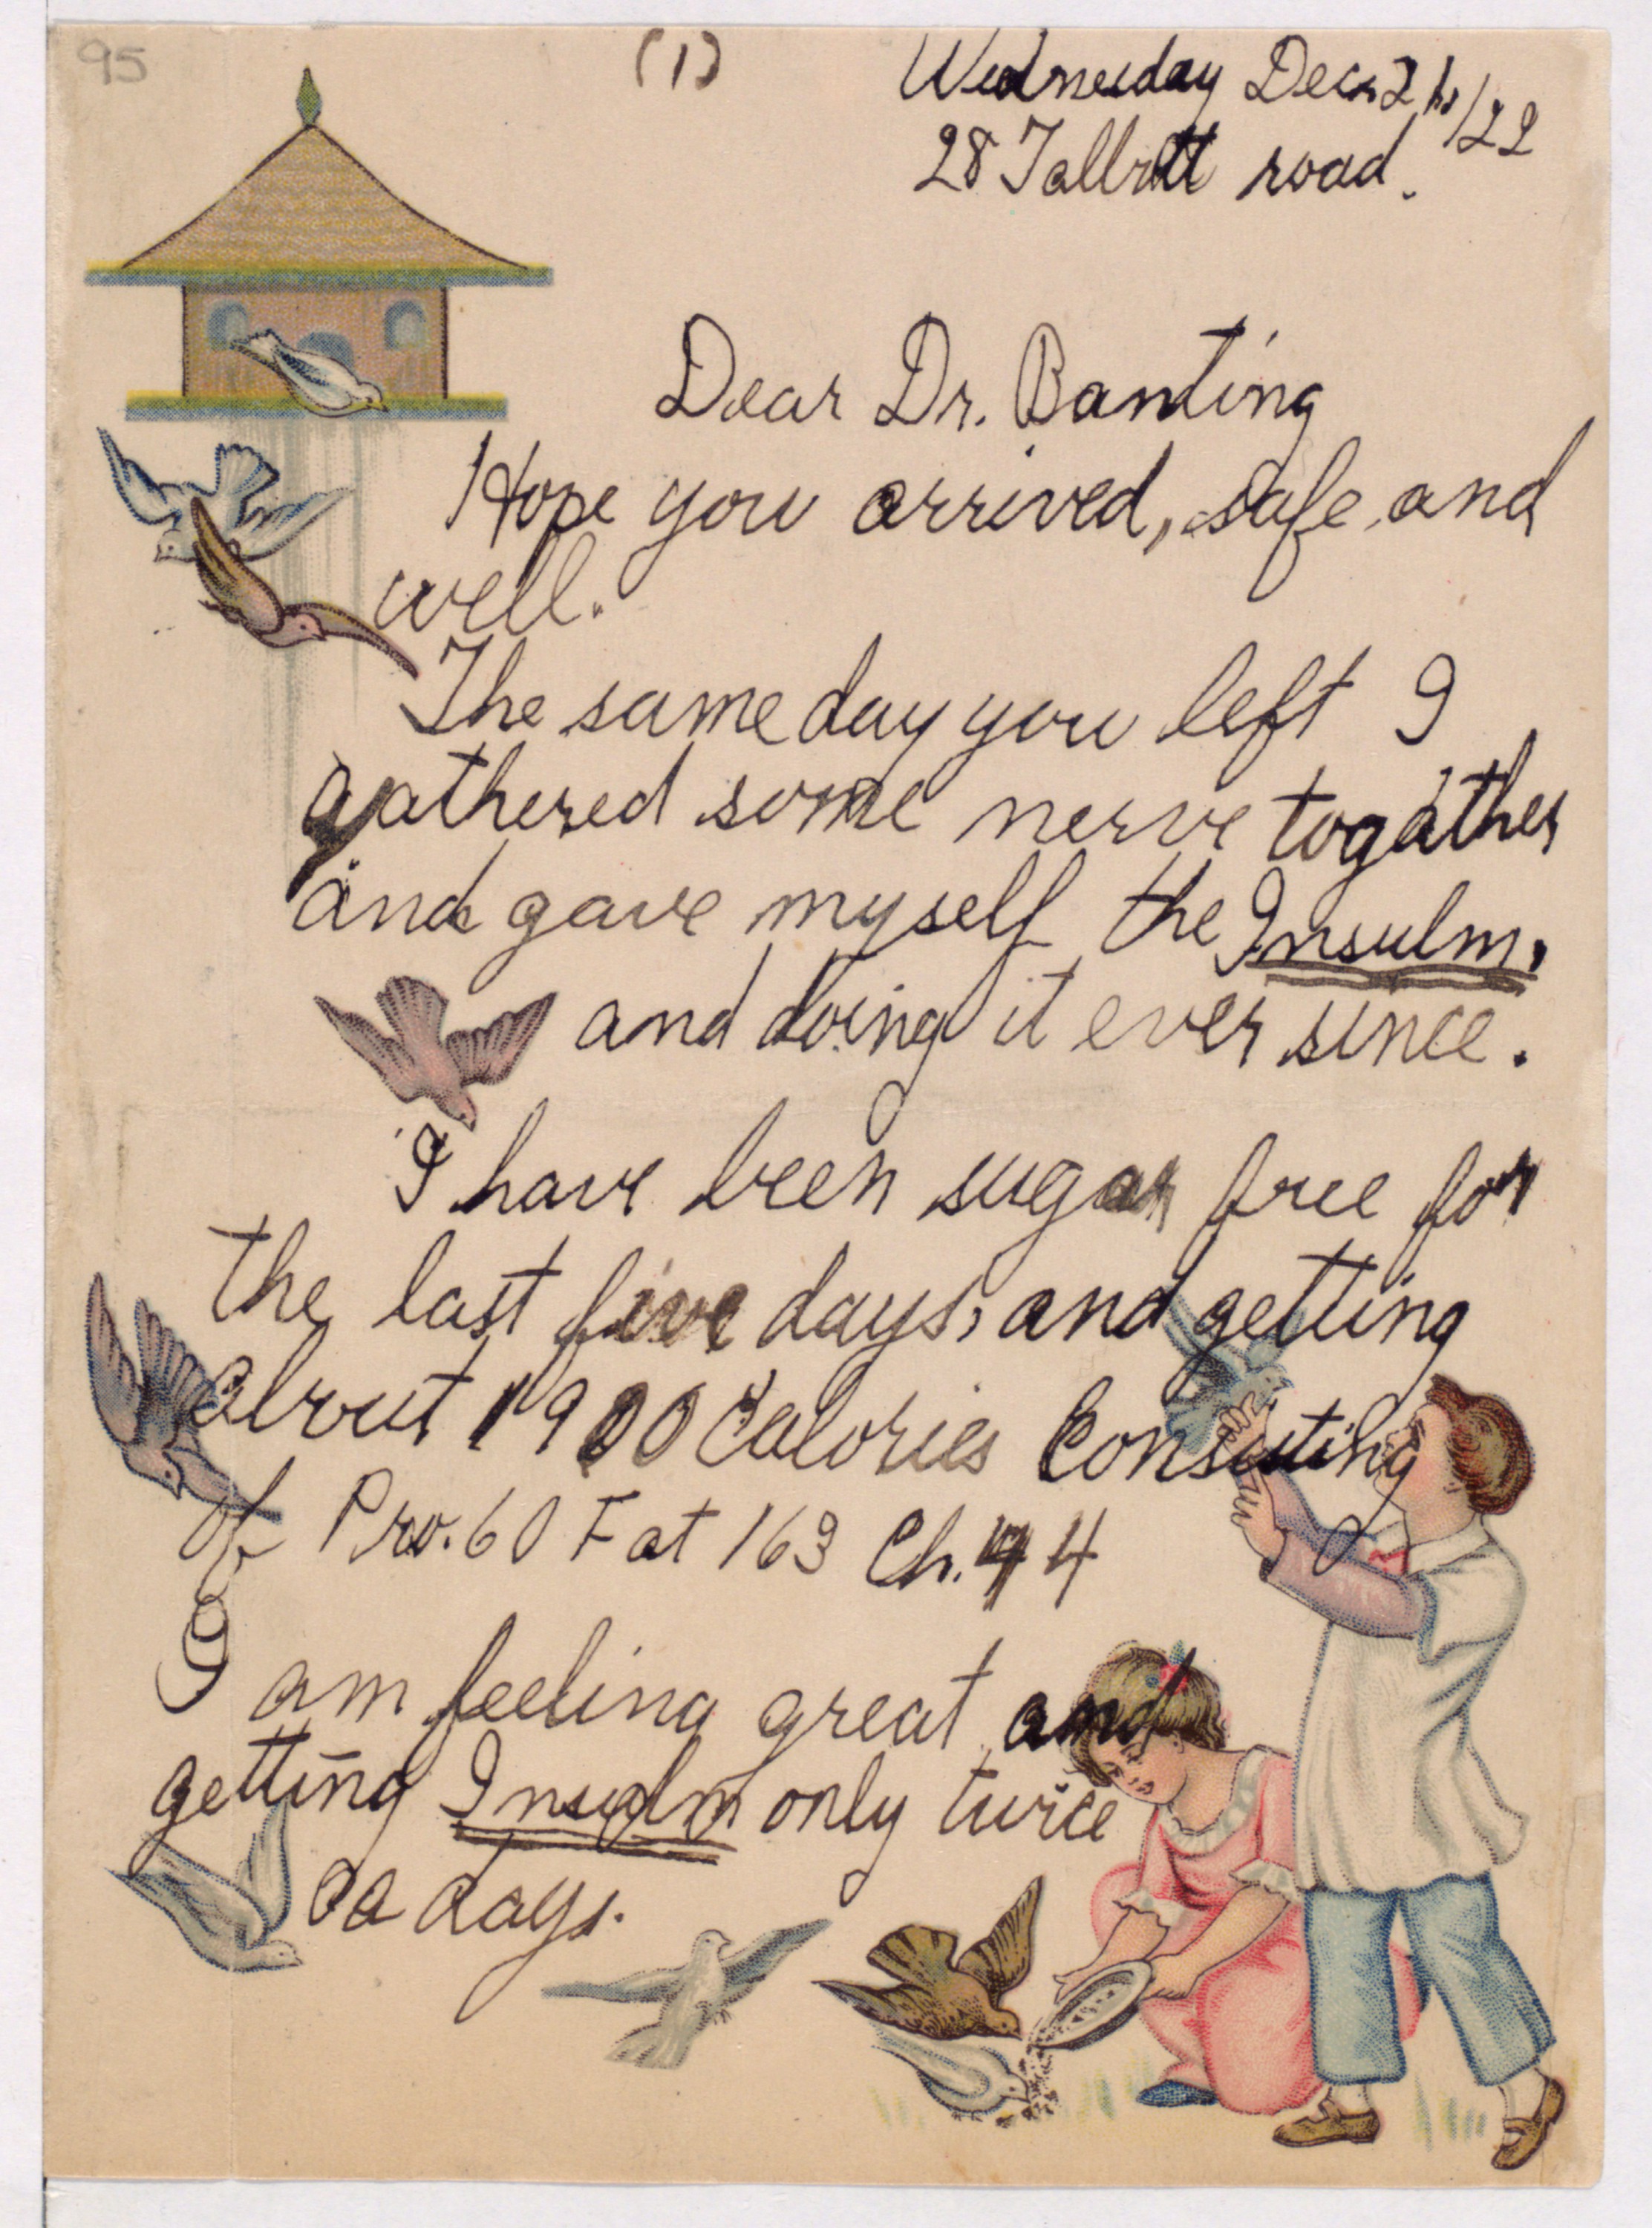 95
(1)
Wednesday Dec. 2 /22
28 Tallott road.
Dear Dr. Banting
Hope you arrived, safe and
well.
The same day you left I
gathered some nerve togather
and gave myself the Insulin.
and doing it ever since.
I have been sugar free for
the last five days, and getting
about 1900 Calories Consisting
of Pro. 60 Fat 163 Ch. 44
I am feeling great and
getting Insulin only twice
a days.